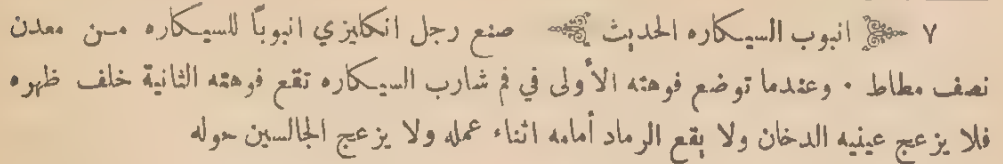 ٧ انبوب السيكاره الحديث صنع رجل انكليزي انبوباً للسيكاره من معدن
نصف مطاط ٠ وعندما توضع فوهته الأولى في فم شارب السيكاره تقع فوهته الثانية خلف ظهره
فلا يزعج عينيه الدخان ولا يقع الرماد أمامه اثناء عمله ولا يزعج الجالسين حوله